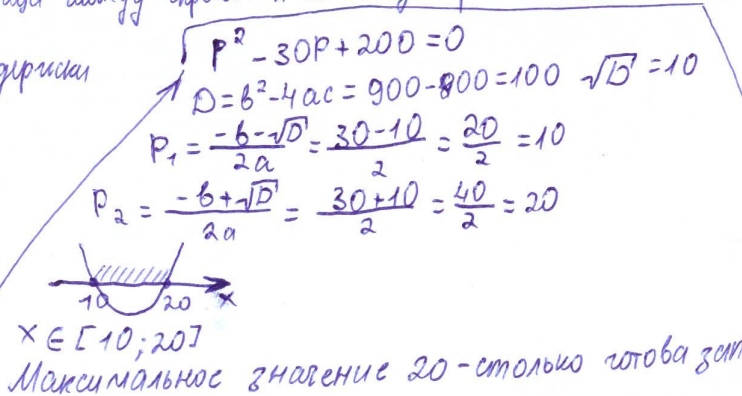 между
P² - 30P + 200 = 0
держки
D = b² - 4ac = 900 - 800 = 100 √D = 10
P₁ = (-b - √D)/2a = (30 - 10)/2 = 20/2 = 10
P₂ = (-b + √D)/2a = (30 + 10)/2 = 40/2 = 20
10 20 x
x ∈ [10; 20]
Максимальное значение 20 - столько готова зап